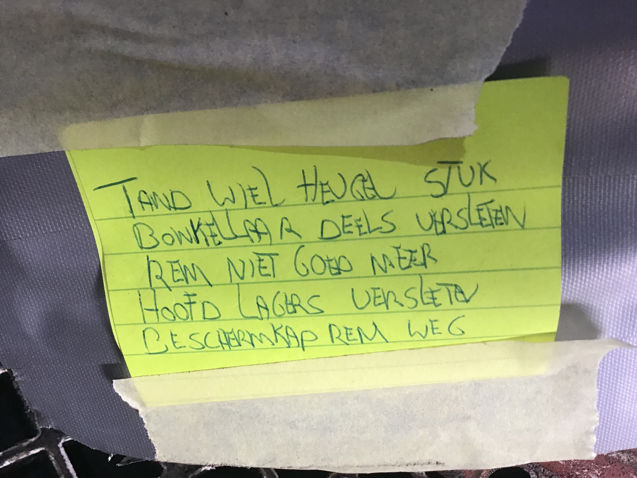 TAND WIEL HEUGEL STUK
BONKELAAR DEELS VERSLETEN
REM NIET GOED MEER
HOOFD LAGERS VERSLETEN
BESCHERMKAP REM WEG